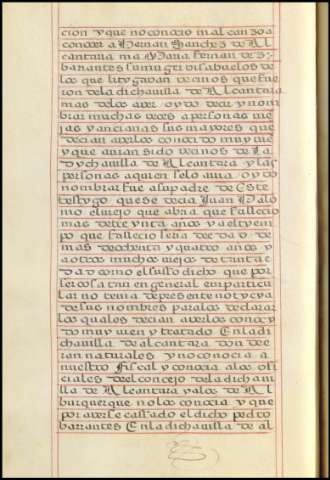 cion y que no conocio ni alcanzo a
conocer a hernan sanchez de Al
cantara ma y Maria fernandez
barrantes sus visabuelos de
los que litygavan vecinos que fue
ron de la dicha villa de Alcantara
mas de los aver oydo decir y nom
brar muchas veces a personas vie
jas y ancianas sus mayores que
decian averlos conocido muy vie
y que avian sido vecinos de la
dycha villa de Alcantara y las
personas a quien se lo avia oydo
nombrar fue a su padre de este
testygo que se decia Juan palo
mo el viejo que abra que fallecio
mas de treynta anos y al tyem
po que fallecio seria de edad de
mas de ochenta y quatro anos y
a otros muchos viejos de tanta e
dad como el suso dicho que por
ser cosa tan en general en particu
lar no tenia de presente notycya
de sus nombres para los declarar
los quales decian averlos conocy
do muy vien y tratado En la di
cha villa de alcantara donde e
ran naturales y no conocia a
nuestro fiscal y conocia a los ofi
ciales del concejo de la dicha vi
lla de Alcantara y a los de Al
burquerque no los conocia y que
por averse cassado el dicho pedro
barrantes En la dicha villa de al